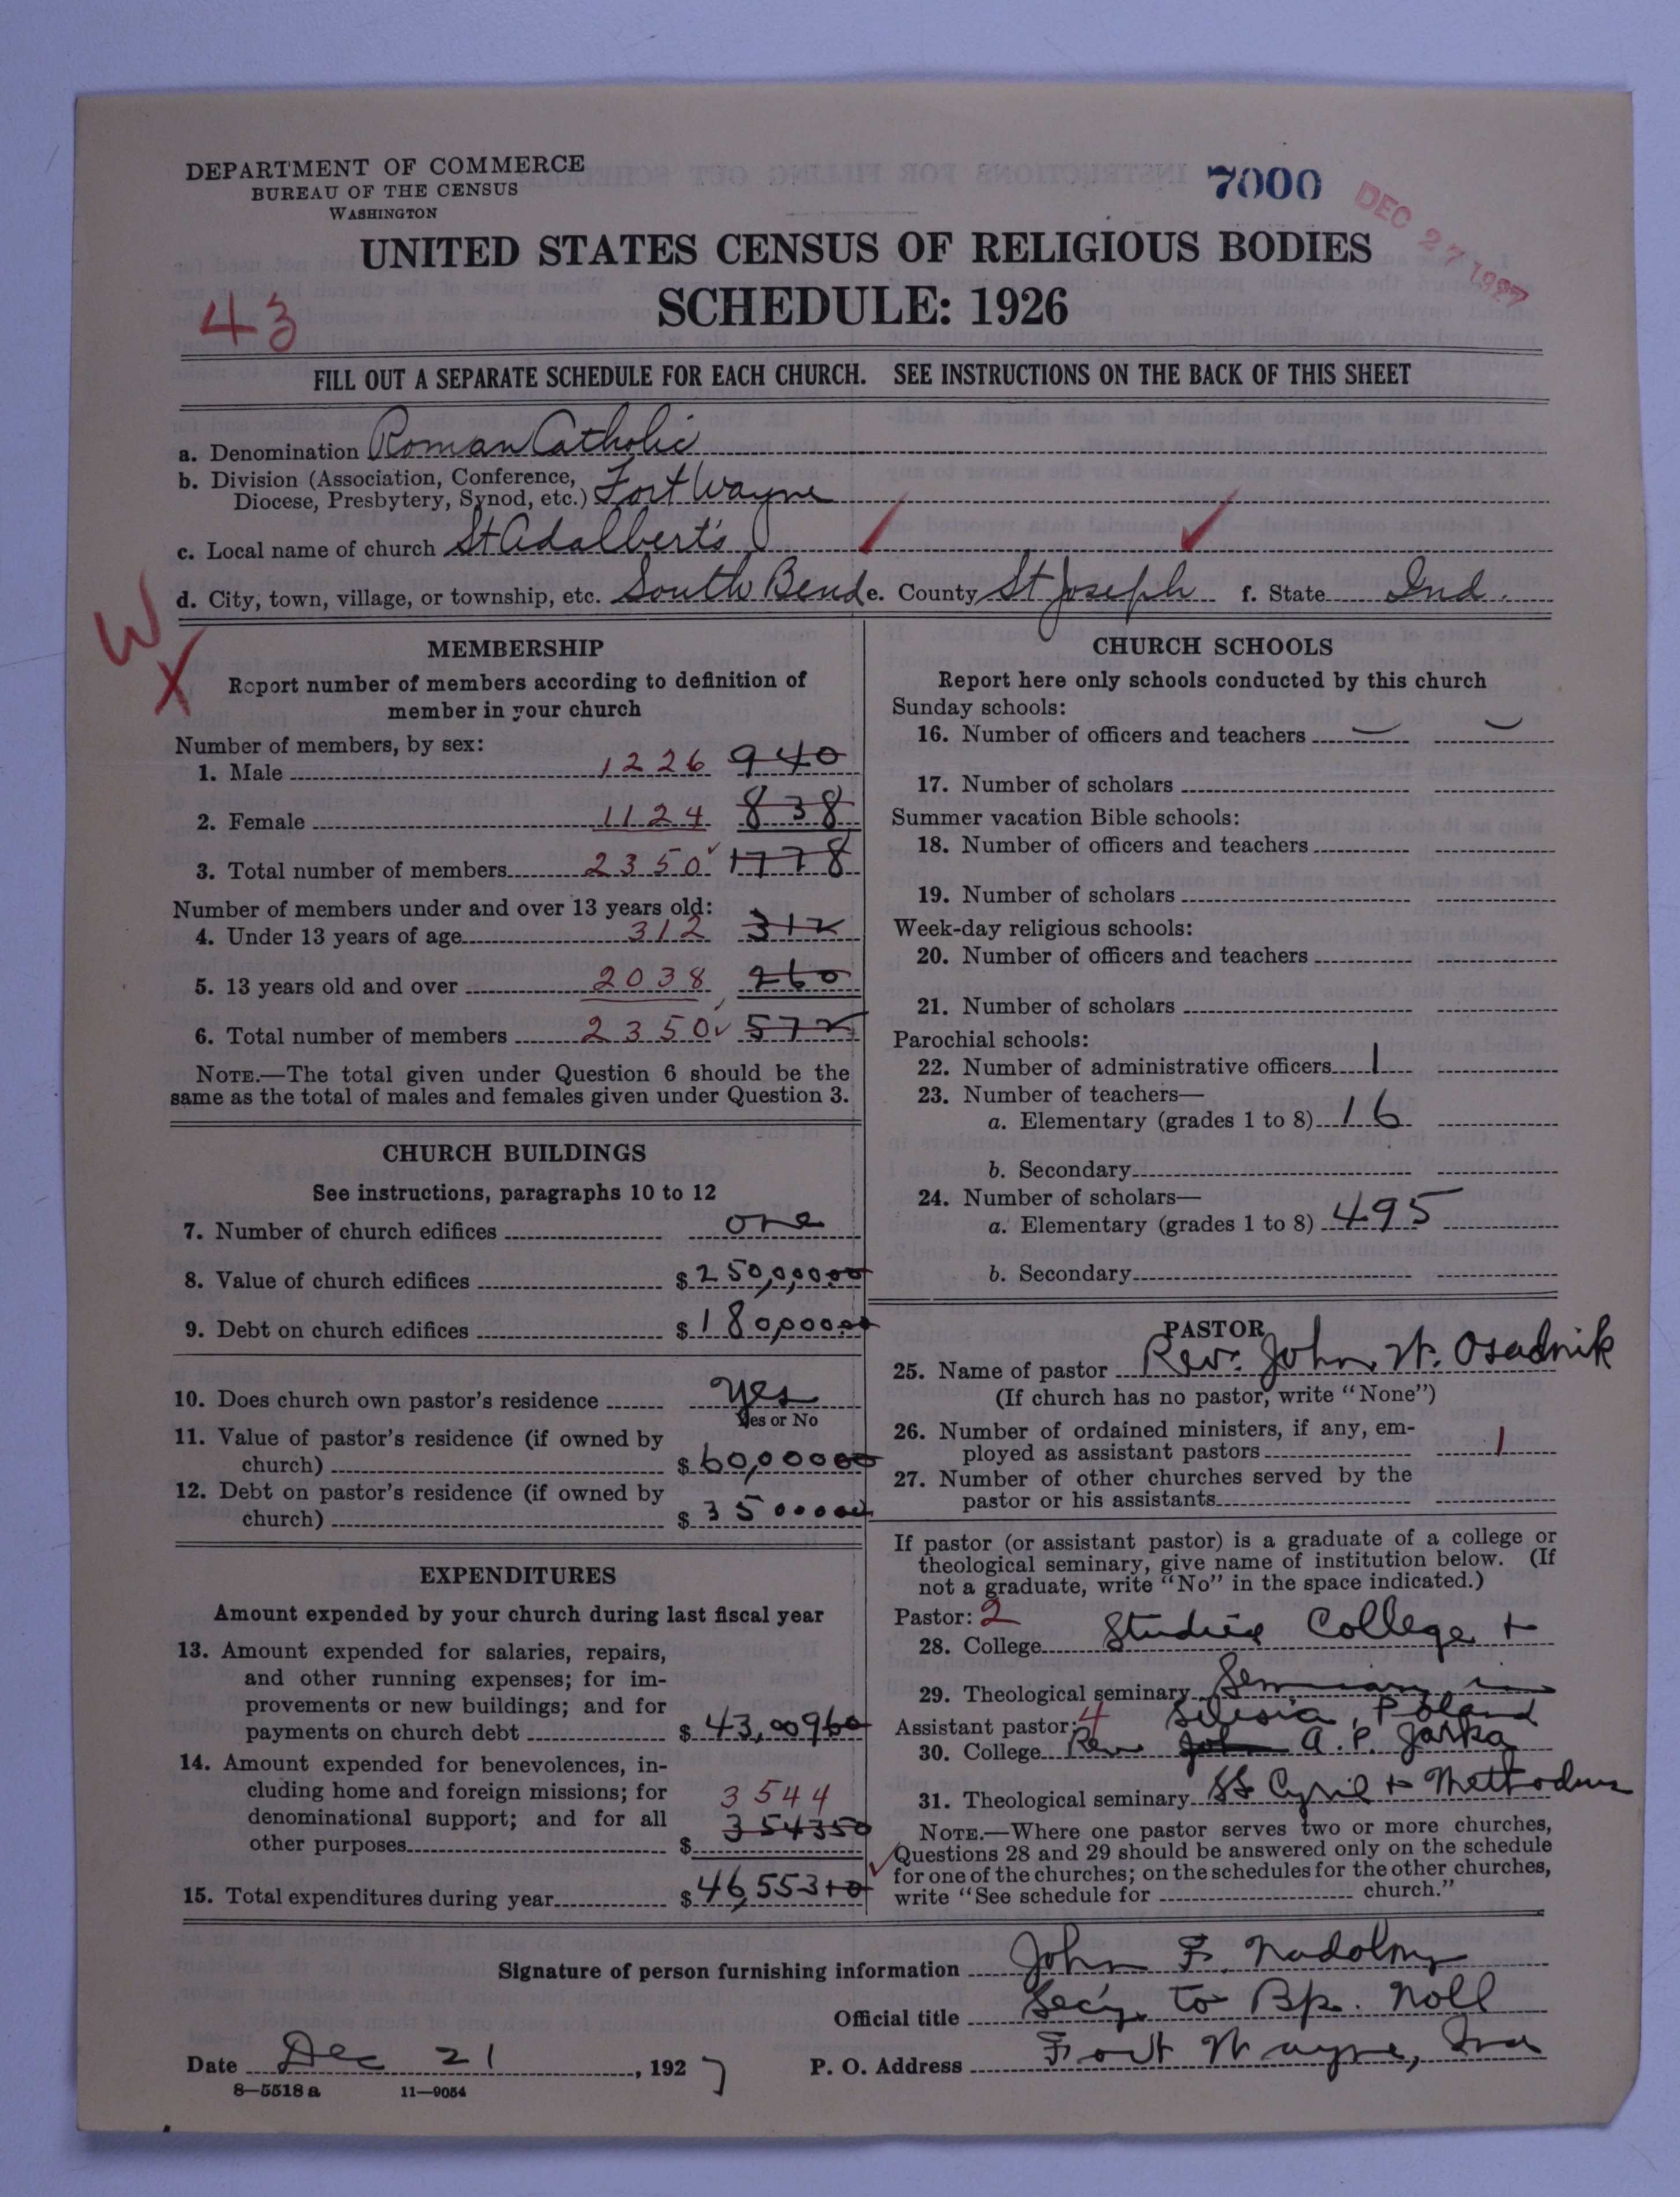 DEPARTMENT OF COMMERCE
BUREAU OF THE CENSUS
WASHINGTON
7000
DEC 27 1927
UNITED STATES CENSUS OF RELIGIOUS BODIES
SCHEDULE: 1926
43
FILL OUT A SEPARATE SCHEDULE FOR EACH CHURCH. SEE INSTRUCTIONS ON THE BACK OF THIS SHEET
a. Denomination Roman Catholic
b. Division (Association, Conference, Diocese, Presbytery, Synod, etc.) Fort Wayne
c. Local name of church St Adalbert's
d. City, town, village, or township, etc. South Bend e. County St Joseph f. State Ind.
W
X
MEMBERSHIP
Report number of members according to definition of
member in your church
Number of members, by sex:
1. Male 1226 940
2. Female 1124 838
3. Total number of members 2350 1778
Number of members under and over 13 years old:
4. Under 13 years of age 312 312
5. 13 years old and over 2038 260
6. Total number of members 2350 572
NOTE.—The total given under Question 6 should be the
same as the total of males and females given under Question 3.
CHURCH BUILDINGS
See instructions, paragraphs 10 to 12
7. Number of church edifices one
8. Value of church edifices $250,000.00
9. Debt on church edifices $180,000.00
10. Does church own pastor's residence yes
Yes or No
11. Value of pastor's residence (if owned by
church) $60,000.00
12. Debt on pastor's residence (if owned by
church) $35000.00
EXPENDITURES
Amount expended by your church during last fiscal year
13. Amount expended for salaries, repairs,
and other running expenses; for im-
provements or new buildings; and for
payments on church debt $43,00960
14. Amount expended for benevolences, in-
cluding home and foreign missions; for
denominational support; and for all
other purposes $ 3544 354350
15. Total expenditures during year $46,55310
CHURCH SCHOOLS
Report here only schools conducted by this church
Sunday schools:
16. Number of officers and teachers
17. Number of scholars
Summer vacation Bible schools:
18. Number of officers and teachers
19. Number of scholars
Week-day religious schools:
20. Number of officers and teachers
21. Number of scholars
Parochial schools:
22. Number of administrative officers 1
23. Number of teachers—
a. Elementary (grades 1 to 8) 16
b. Secondary
24. Number of scholars—
a. Elementary (grades 1 to 8) 495
b. Secondary
PASTOR
25. Name of pastor Rev. John W. Osadnik
(If church has no pastor, write "None")
26. Number of ordained ministers, if any, em-
ployed as assistant pastors 1
27. Number of other churches served by the
pastor or his assistants
If pastor (or assistant pastor) is a graduate of a college or
theological seminary, give name of institution below. (If
not a graduate, write "No" in the space indicated.)
Pastor: 2
28. College Studies College +
29. Theological seminary Seminary in
Assistant pastor: 4 Silesia, Poland
30. College Rev John A. P. Jarka
31. Theological seminary SS Cyril + Methodius
NOTE.—Where one pastor serves two or more churches,
Questions 28 and 29 should be answered only on the schedule
for one of the churches; on the schedules for the other churches,
write "See schedule for church."
Signature of person furnishing information John F. Nadolny
Official title Sec'y to Bp. Noll
Date Dec 21, 1927 P. O. Address Fort Wayne, Ind
8—5518 a 11—9054